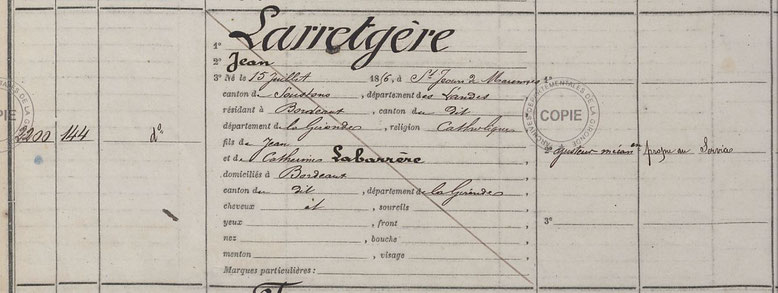 1° Larretgère
2° Jean
3° Né le 15 juillet 1856, à St Jean de Marennes
canton de Soustons, département des Landes
résidant à Bordeaux, canton du dit
département de la Gironde, religion Catholique
fils de Jean
et de Catherine Labarrère
domiciliés à Bordeaux
canton du dit, département de la Gironde
cheveux et, sourcils
yeux, front
nez, bouche
menton, visage
Marques particulières :
2200 144 do
1°
2° Ajusteur mécan en propre au Service
3°
ARCHIVES DÉPARTEMENTALES DE LA GIRONDE
COPIE